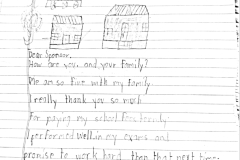 Dear Sponsor,
How are you and your family?
Me am so fine with my family
I really thank you so much
For paying my school fees
I performed well in my exams and
promise to work hard then that next time.